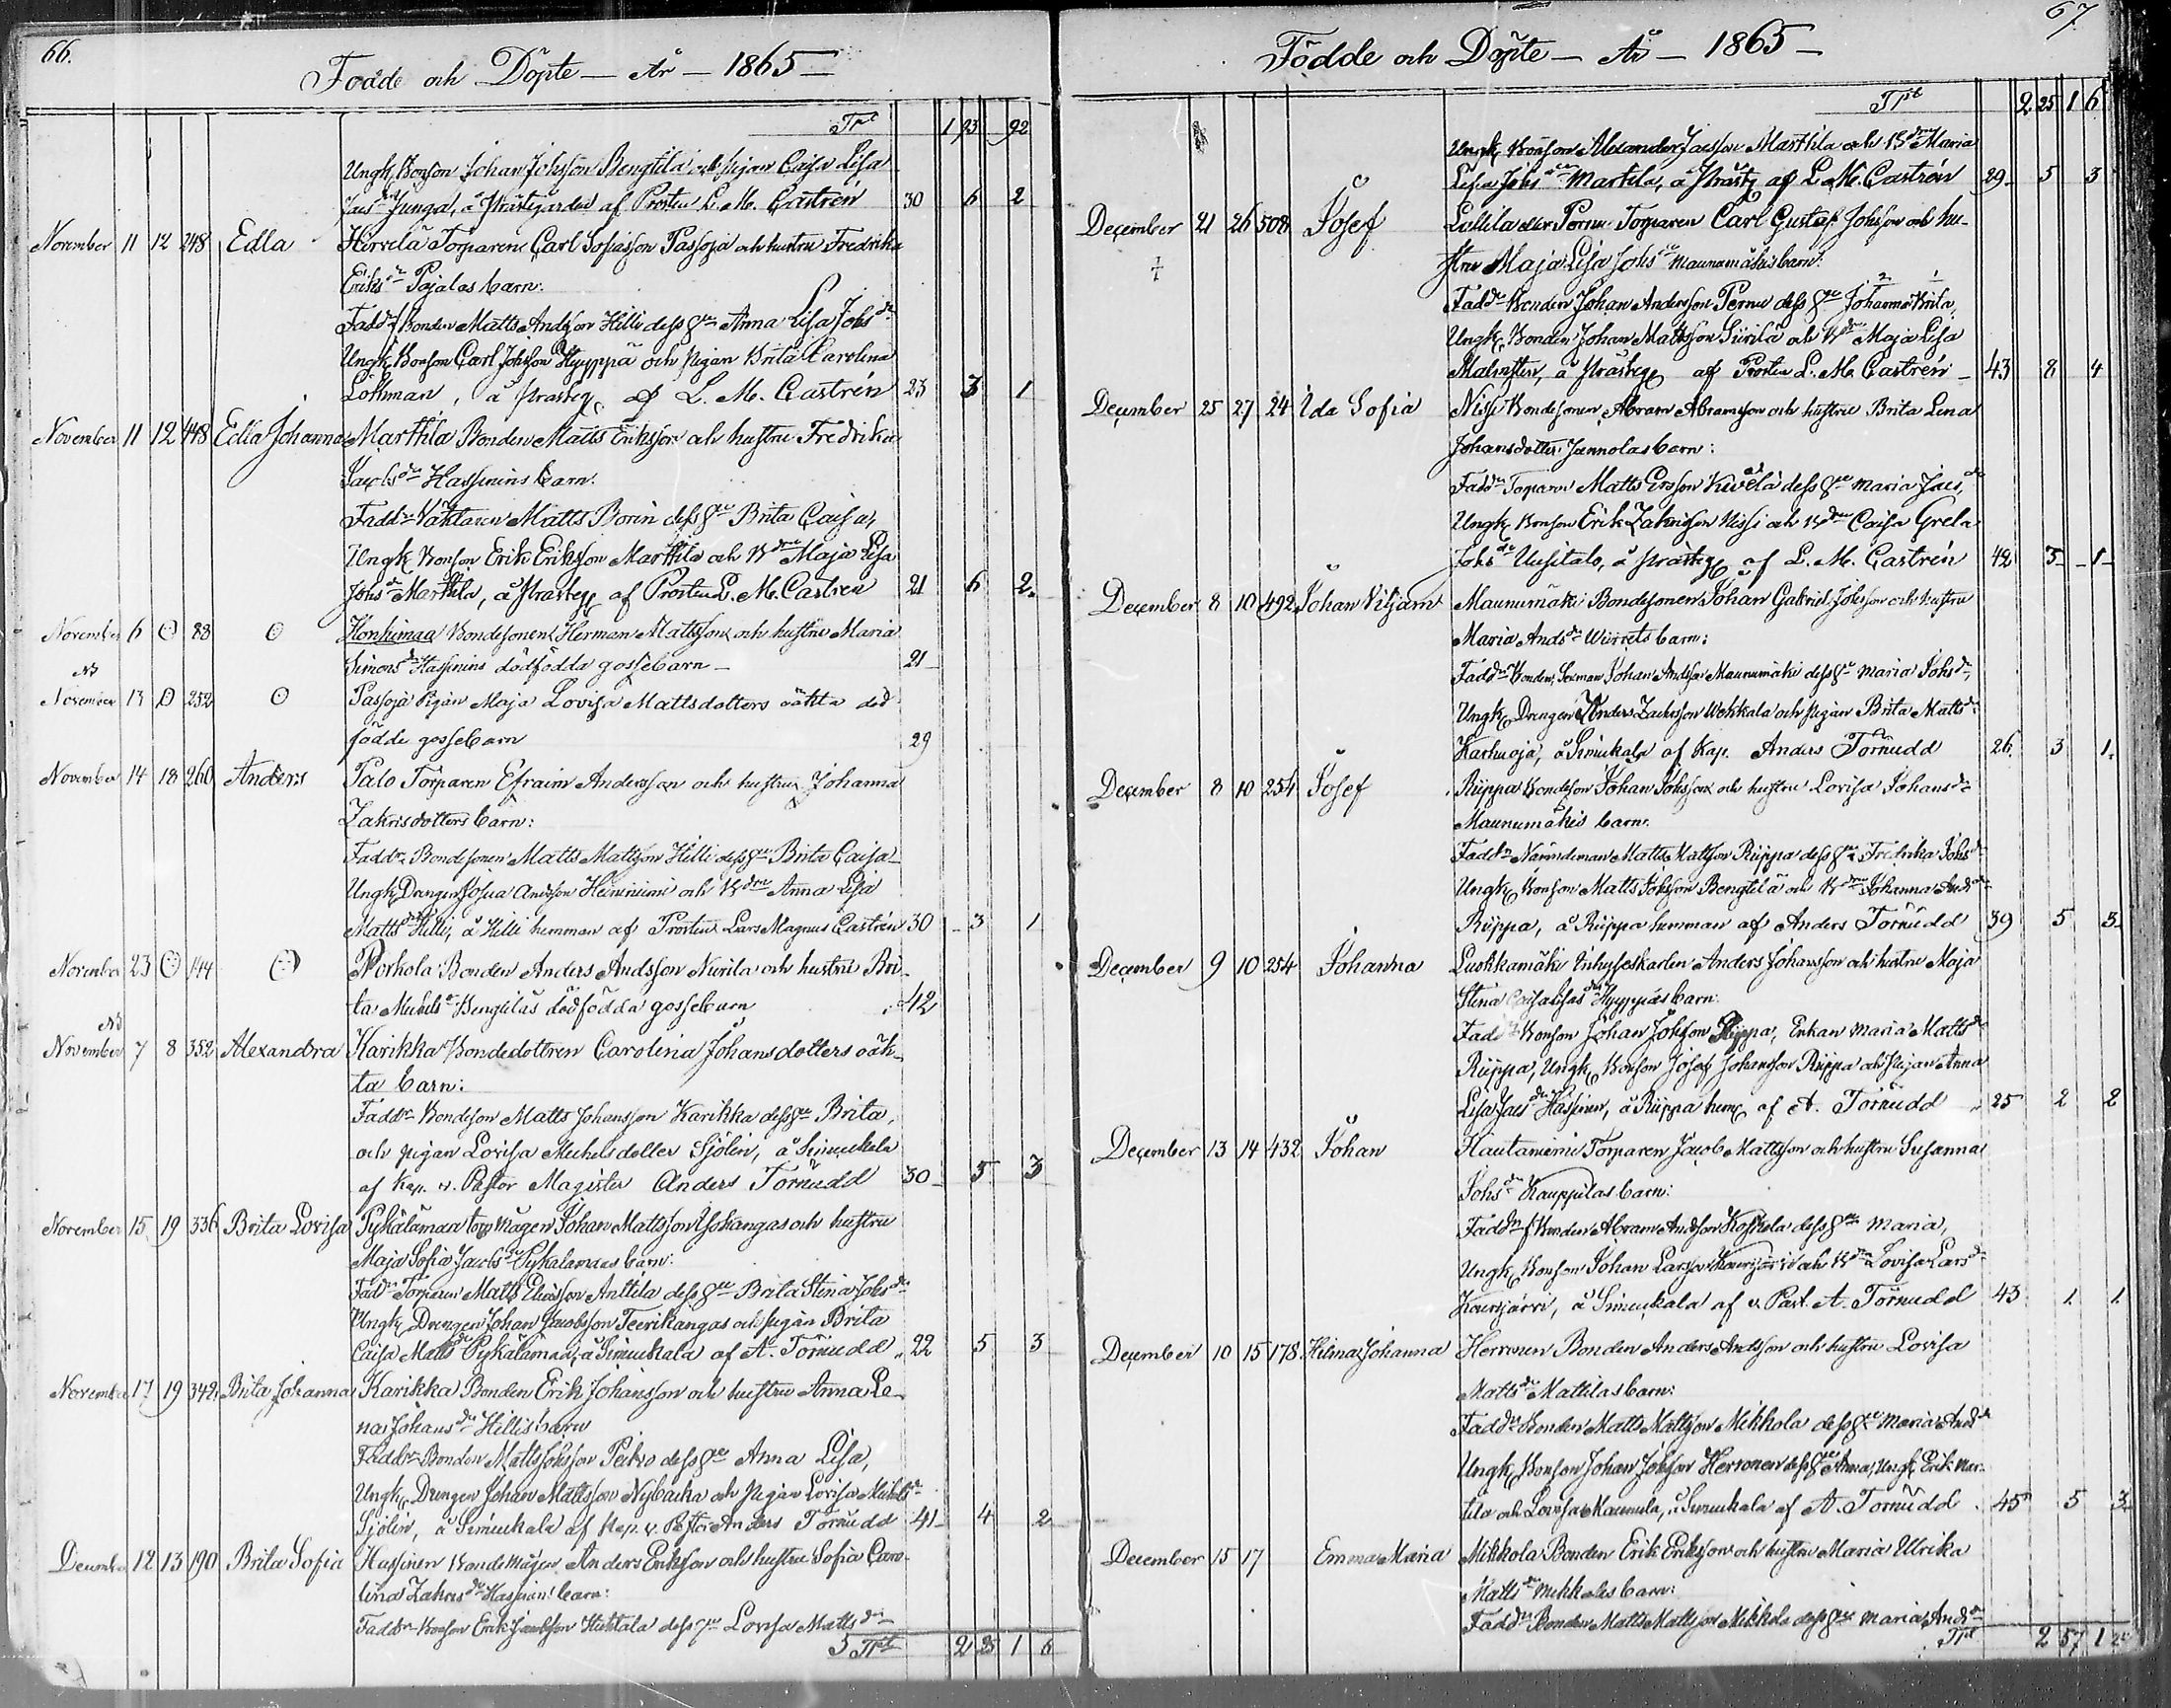 66.
Födde och Döpte — År — 1865 —
Trpt 1 23 92
Ungk, Bonson Johan Johsson Bengtilä och pigan Caisa Lisa
Jacsdr Junga, å Prästegården af Prosten L. M. Castrén 30 6 2
November 11 12 248 Edla Hirvelä Torparen Carl Sofiasson Passoja och hustru Fredrika
Eriksdr Pajalas barn:
Faddr Bonden Matts Andsson Hilli dess hu Anna Lisa Johsdr
Ungk, Bonson Carl Johsson Hyyppä och pigan Brita Carolina
Löthman, å Prästeg. af L. M. Castrén 23 3 1
November 11 12 448 Edla Johanna Marttila Bonden Matts Eriksson och hustru Fredrika
Jacobsdr Hassinens barn.
Faddr Väktaren Matts Borin dess hu Brita Caisa,
Ungk, Bonson Erik Eriksson Marttila och Bdrn Maja Lisa
Johsdr Marttila, å Prästeg af Prosten L. M. Castrén 21 6 2.
November 6 O 88 O Honkimaa Bondesonen Herman Mattsson och hustru Maria
Simonsdr Hassinens dödfödda gossebarn — 21 —
NB
November 13 O 252 O Passoja Pigan Maja Lovisa Mattsdotters oäkta död
födde gossebarn 29
November 14 18 260 Anders Palo Torparen Efraim Andersson och hustru Johanna
Zakrisdotters barn:
Faddr. Bondesonen Matts Mattsson Hilli dess hu Brita Caisa
Ungk, Drengen Josua Andsson Heininiemi och Bdrn Anna Lisa
Mattsdr Hilli, å Hilli hemman af Prosten Lars Magnus Castrén 30 3 1
November 23 O 144 O Porkola Bonden Anders Andsson Nurila och hustru Bri-
ta Michelsdr Bengtiläs dödfödda gossebarn 42
NB
November 7 8 352 Alexandra Karikka Bondedottren Carolina Johansdotters oäk-
ta barn:
Faddr Bondsson Matts Johansson Karikka dess hu Brita,
och pigan Lovisa Michelsdotter Sjölin, å Simuckala
af Kap. v. Pastor Magister Anders Törnudd 30 5 3
November 15 19 336 Brita Lovisa Pykälämaa torp mågen Johan Mattsson Isokangas och hustru
Maja Sofia Jacobsdr Pykälämaas barn:
Faddr Torparen Matts Eliasson Anttila dess hu Brita Stina Johsdr
Ungk, Drengen Johan Jacobsson Teerikangas och pigan Brita
Caisa Mattsdr Pykälämaa, å Simuckala af A. Törnudd 22 5 3
November 17 19 342 Brita Johanna Karikka Bonden Erik Johansson och hustru Anna Le-
na Johansdr Hillis barn
Faddr Bonden Matts Johsson Peitso dess hu Anna Lisa,
Ungk, Drengen Johan Mattsson Nybacka och pigan Lovisa Michelsdr
Sjölin, å Simuckala af Kap. v. Pastor Anders Törnudd 41 4 2
December 12 13 190 Brita Sofia Hassinen Bonde mågen Anders Eriksson och hustru Sofia Caro-
lina Zakrisdr Hassinens barn:
Faddr Bonson Erik Jacobsson Huhtala dess hu Lovisa Mattsdr
Trpt 2 25 1 6
67.
Födde och Döpte — År — 1865 —
Trpt 2 25 1 6
Ungk, Bonson Alexander Jacsson Marttila och Bdrn Maria
Lisa Johsdr Marttila, å Prästg af L. M. Castrén 29 5 3
December 21 26 508 Josef Lullila eller Pernu Torparen Carl Gustaf Johsson och hu-
stru Maja Lisa Johsdr Maunumäkis barn:
Faddr Bonden Johan Andersson Pernu dess hu Johanna Brita,
Ungk, Bonden Johan Mattsson Siirilä och Bdrn Maja Lisa
Malmsten, å Prästeg af Prosten L. M. Castrén 43 8 4
December 25 27 24 Ida Sofia Nissi Bondesonen Abram Abramsson och hustru Brita Lena
Johansdotter Jannolas barn:
Faddr Torparen Matts Ersson Kivelä dess hu Maria Jacsdr,
Ungk, Bonson Erik Zakrisson Nissi och Bdrn Caisa Greta
Johsdr Uusitalo, å Prästeg af L. M. Castrén 42 3 1
December 8 10 492 Johan Viljam Maunumäki Bondesonen Johan Gabriel Johsson och hustru
Maria Andsdr Wiirrets barn:
Faddr Bonden, Sexman Johan Andsson Maunumäki dess hu Maria Johsdr,
Ungk, Drengen Anders Zachrsson Wehkala och pigan Brita Mattsdr
Karhuoja, å Simuckala af Kap. Anders Törnudd 26 3 1.
December 8 10 254 Josef Riippa Bondeson Johan Johsson och hustru Lovisa Johansdr
Maunumäkis barn.
Faddr Nämndeman Matts Mattsson Riippa dess hu Fredrika Johsdr
Ungk, Bonson Matts Johsson Bengtilä och Bdrn Johanna Andsdr
Riippa, å Riippa hemman af Anders Törnudd 39 5 3
December 9 10 254 Johanna Luokkamäki Inhyseskarlen Anders Johansson och hustru Maja
Stina Caisa Lisasdr Hyyppäs barn:
Faddr Bonson Johan Johsson Riippa, Enkan Maria Mattsdr
Riippa, Ungk, Bonson Josef Johansson Riippa och pigan Anna
Lisa Jacsdr Hassinen, å Riippa hem af A. Törnudd 25 2 2
December 13 14 432 Johan Hautaniemi Torparen Jacob Mattsson och hustru Susanna
Johsdr Kauppilas barn:
Faddr Bonden Abram Andsson Koskela dess hu Maria,
Ungk, Bonson Johan Larsson Kaurajärvi och Bdrn Lovisa Larsdr
Kaurajärvi, å Simuckala af v. Past. A. Törnudd 43 1 1
December 10 15 178 Hilma Johanna Herronen Bonden Anders Andsson och hustru Lovisa
Mattsdr Mattilas barn:
Faddr Bonden Matts Mattsson Mikkola dess hu Maria Andsdr
Ungk, Bonson Johan Johsson Herronen dess hu Anna, Ungk, Erik Mar-
tila och Lovisa Kaunula, å Simuckala af A. Törnudd 45 5 3
December 15 17 Emma Maria Mikkola Bonden Erik Eriksson och hustru Maria Ulrika
Mattsdr Mikkolas barn:
Faddr Bonden Matts Mattsson Mikkola dess hu Maria Andsdr
Trpt 2 57 1